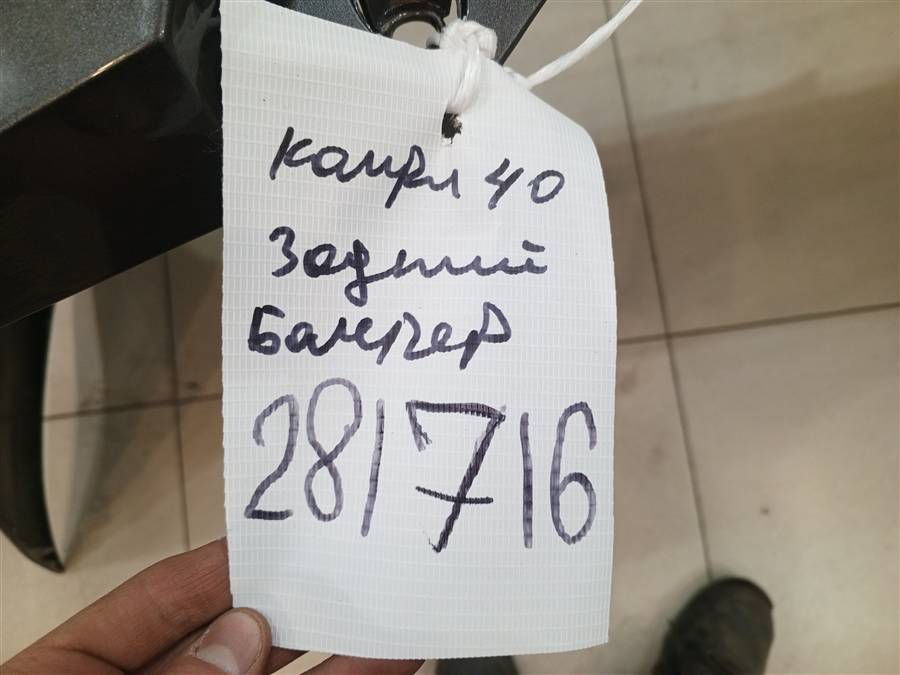 Камри 40
Задний
Бампер
28/7/6